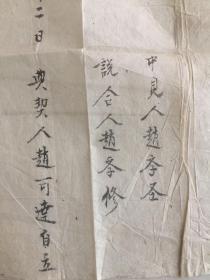 中見人趙李圣
說合人趙孝修
十二日 典契人趙可達自立